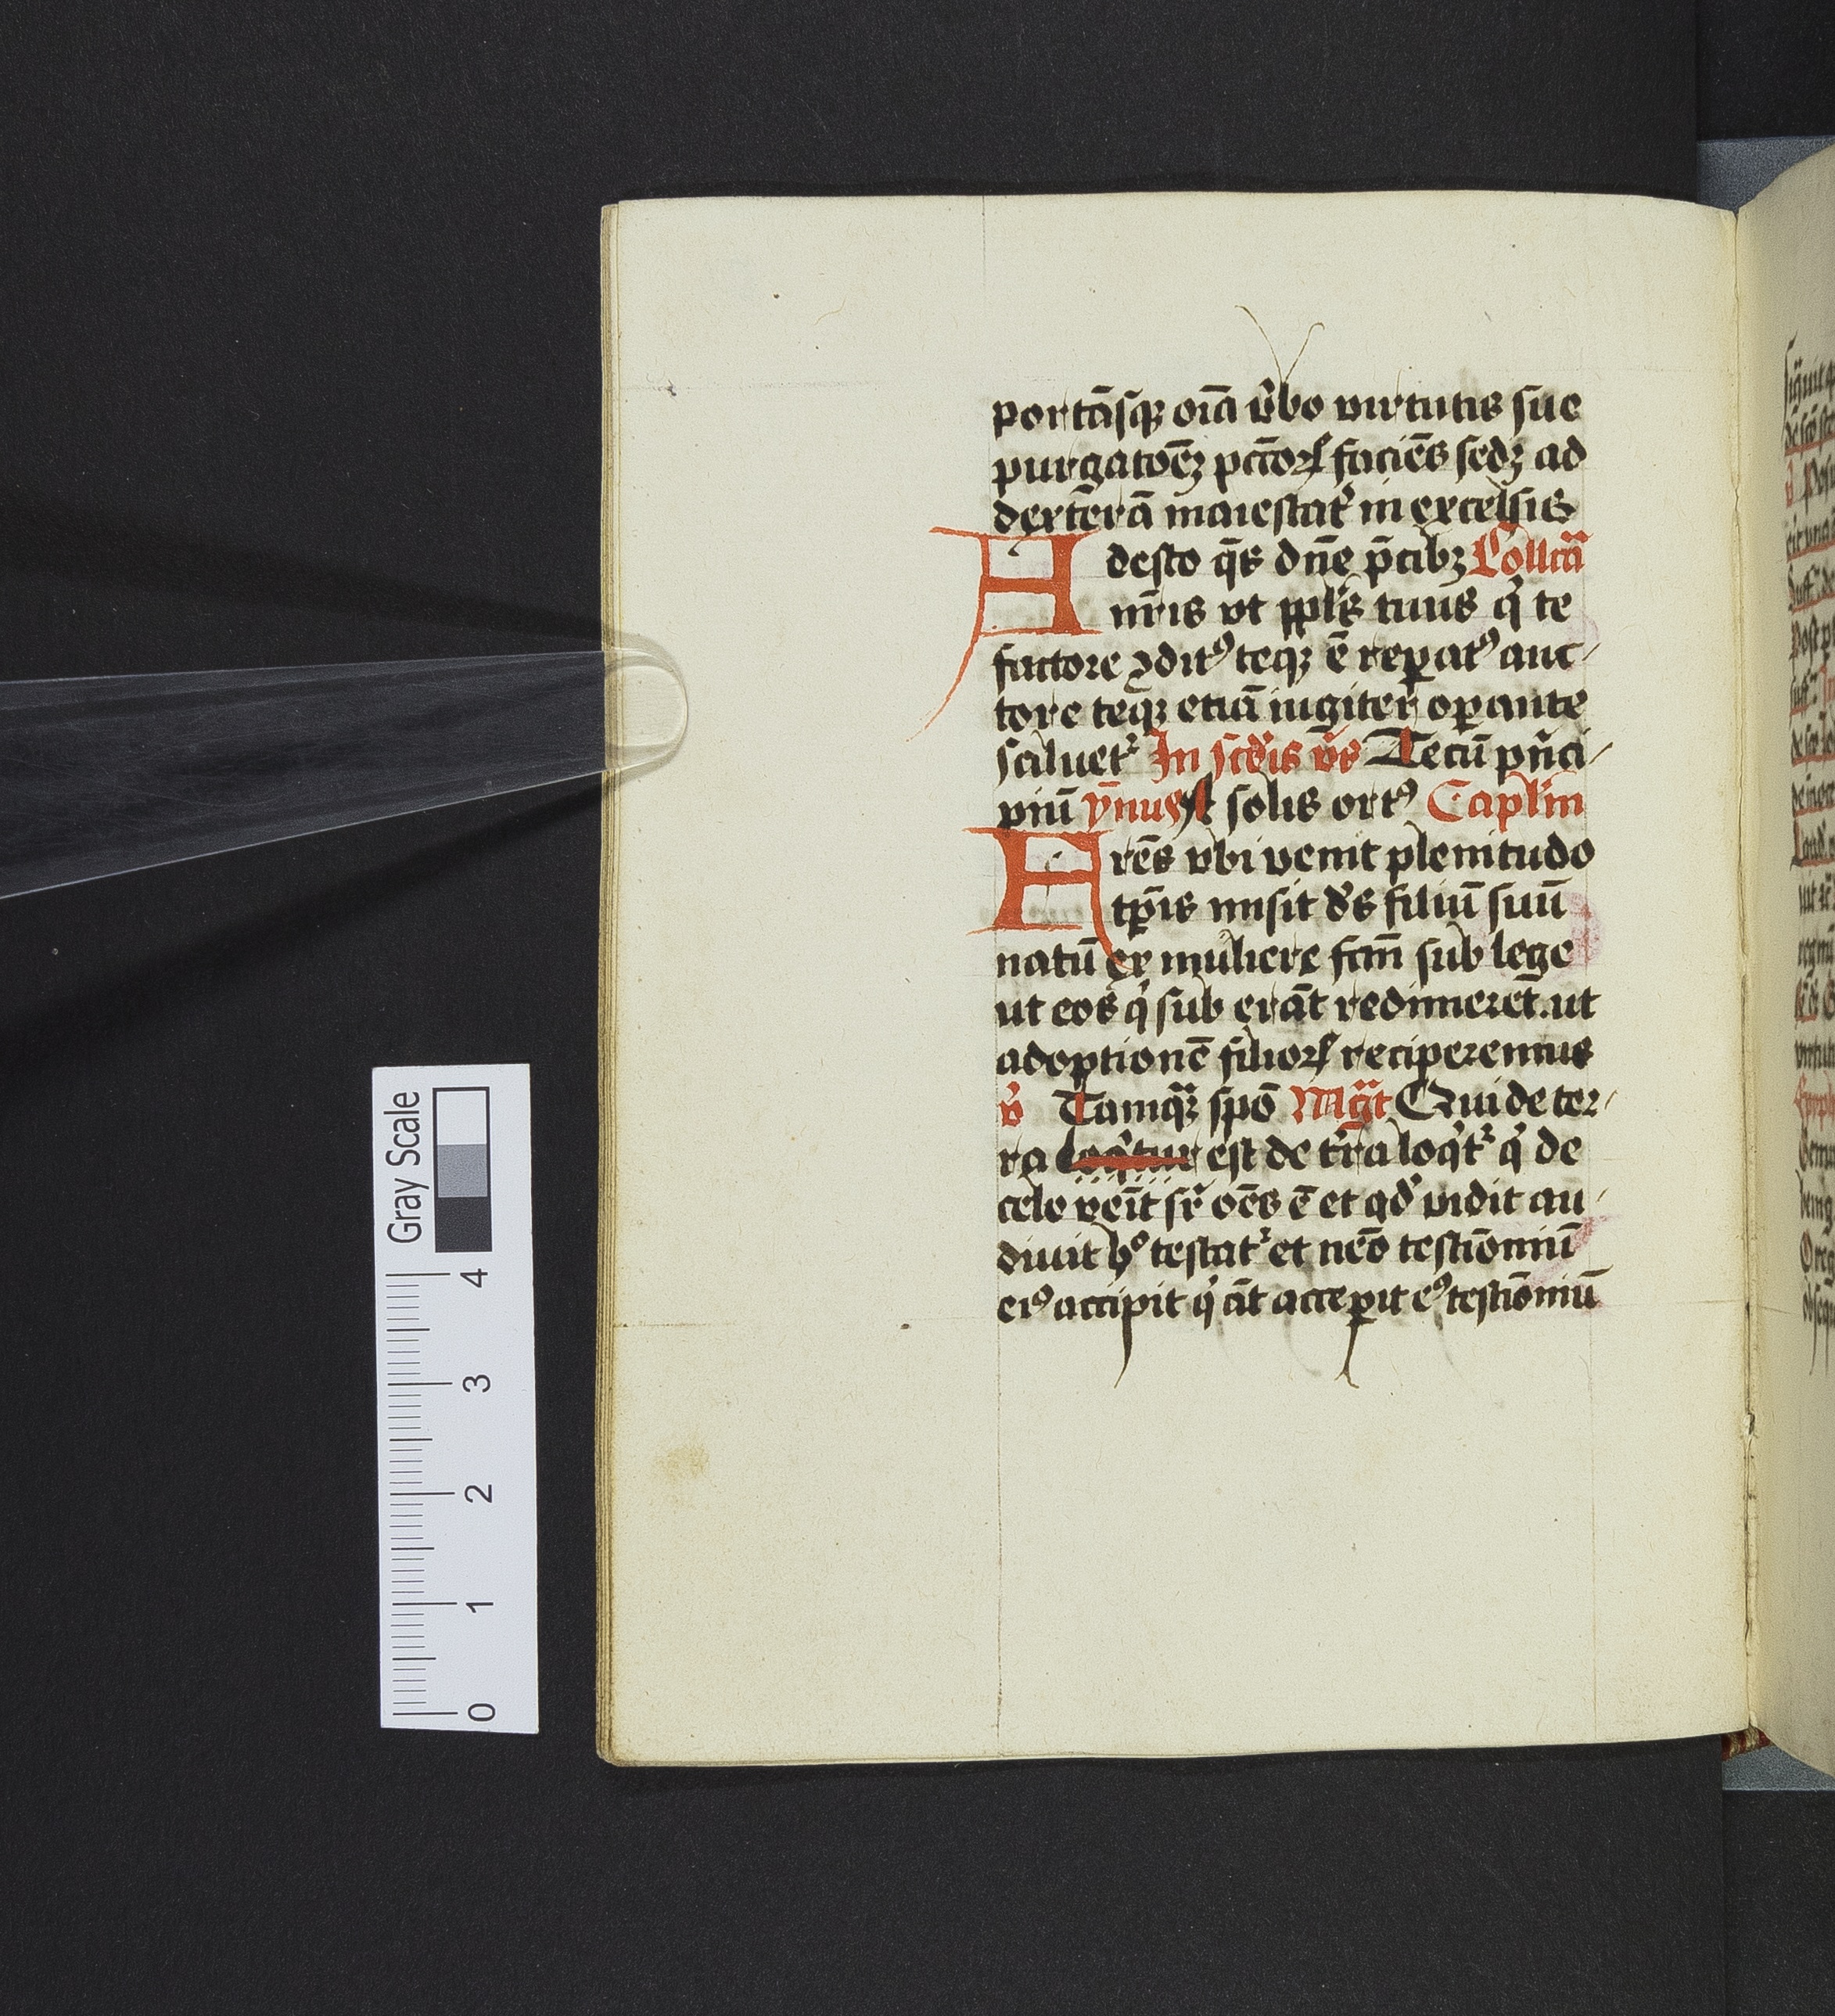 portāsqꝫ oīa v̾bo virtutis sue
purgatōēꝫ pctōꝝ faciēs sedꝫ ad
dexterā maiestat͛ in excelsis
Adesto q̄s dn̄e p̄cibꝫ Collcā
nr̄is vt ppl̄s tuus q̇ te
factore ꝯditꝰ teqꝫ ē rep̱atꝰ auc-
tore teqꝫ etiā iugiter op̱ante
saluet͛ In scd̾is vꝭs Tecū pn̄ci-
piū ȳnus A solis ortꝰ Capl̄m
Frēs vbi venit plenitudo
tp̄is misit d̾s filiū suū
natū ex muliere fcm̄ sub lege
ut eos q̇ sub erāt redimeret̄. ut
adoptionē filioꝝ reciperemus
v̾ Tamqꝫ spō Mag̾t Qui de ter-
ra loq̇tur est de tr̄ra loq̇t͛ q̇ de
celo veīt sr̄ oēs ē et qd̾ vidit au-
diuit hͦ testat͛ et nēo testiōniū
eiꝰ accipit q̇ āt accep̱it eꝰ testiōniū
Gray Scale
4
3
2
1
0